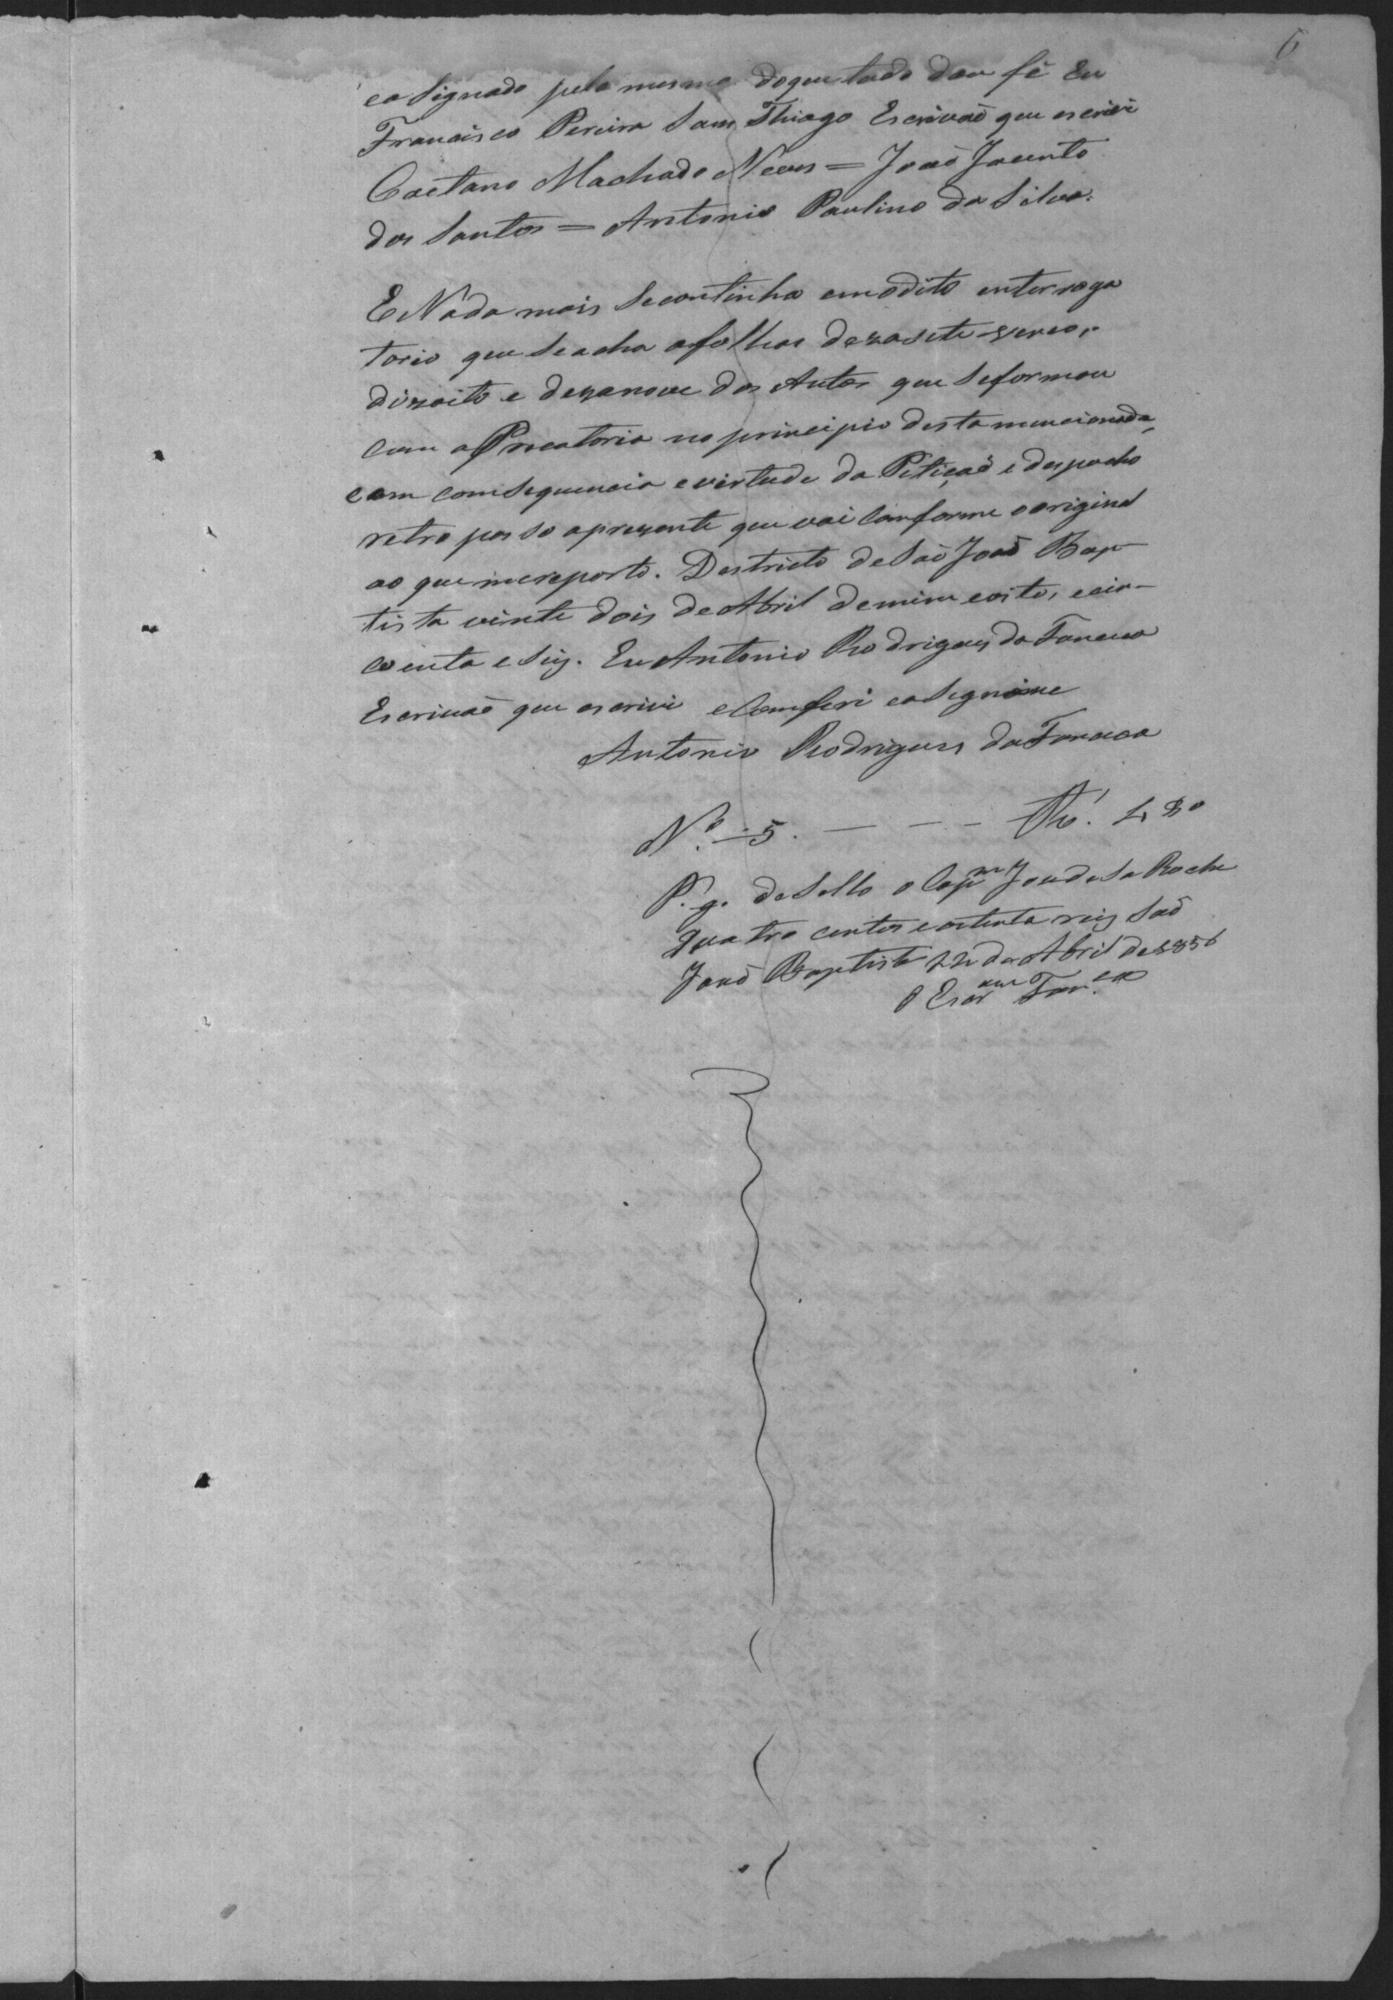 6
easignado pelo mesmo doque tudo dou fé Eu
Francisco Pereira Sam Thiago Escrivaõ que escrevi
Caetano Machado Neves = Joaõ Jacinto
dos Santos = Antonio Paulino da Silva.
E Nada mais Secontinha emodito enterroga
torio que Seacha afolhas dezasete verso,
dizoito e dezanove dos Autos que Seformou
com aPrecatoria no principio desta mencionada,
eem comsequencia evirtude da Petiçaõ e despacho
retro passo aprezente que vai Comforme ooriginal
ao que mereporto. Destricto de Saõ Joaõ Bap-
tista vinte dois de Abril demim eoito, ecin-
coenta e Seiz. Eu Antonio Rodrigues da Fonceca
Escrivaõ que escrivi eComferi easignime
Antonio Rodrigues da Fonceca
Nº 5. — — — Rs. 480
P. g. de Sello o Capm Joaõ de Sa Rocha
quatro centos eoitenta reis Saõ
Joaõ Baptista 22 de Abril de 1856
O Escr Fonca